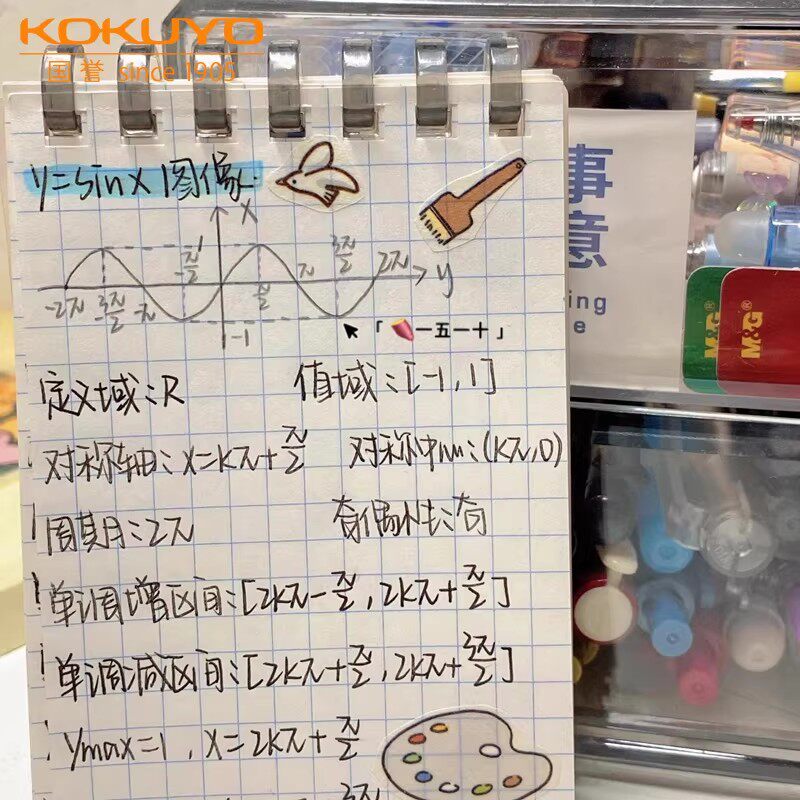 KOKUYO
国誉 since 1905
y=sinx图像.
x
1
-π/2
3π/2
-2π
-3π/2
-π
π/2
π
2π
y
-1
「一五一十」
定义域:R 值域:[-1,1]
对称轴:x=kπ+π/2 对称中心:(kπ,0)
周期:2π 奇偶性:奇
单调增区间:[2kπ-π/2,2kπ+π/2]
单调减区间:[2kπ+π/2,2kπ+3π/2]
ymax=1,x=2kπ+π/2
3π
事
意
ing
e
M&G
M&G